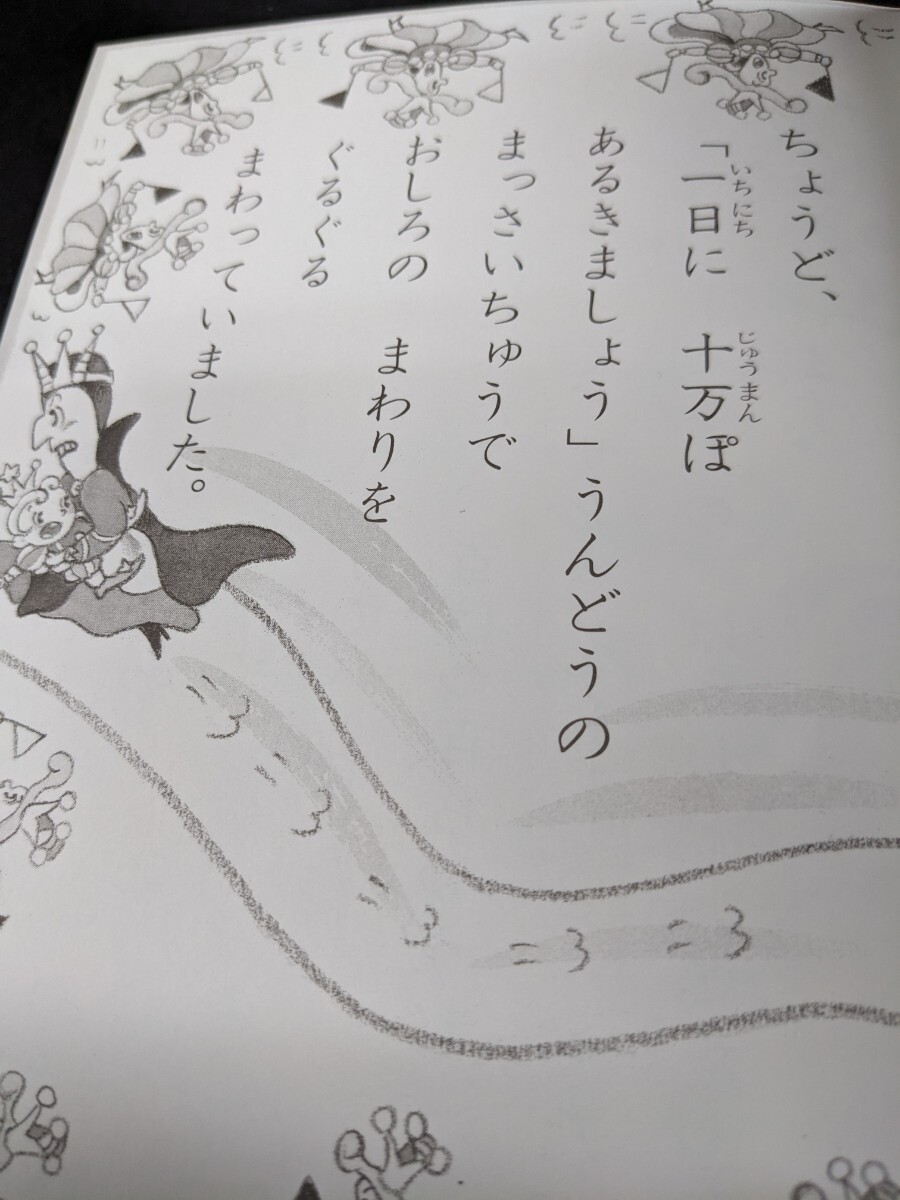 ちょうど、
「一日に 十万ぽ
あるきましょう」うんどうの
まっさいちゅうで
おしろの まわりを
ぐるぐる
まわっていました。